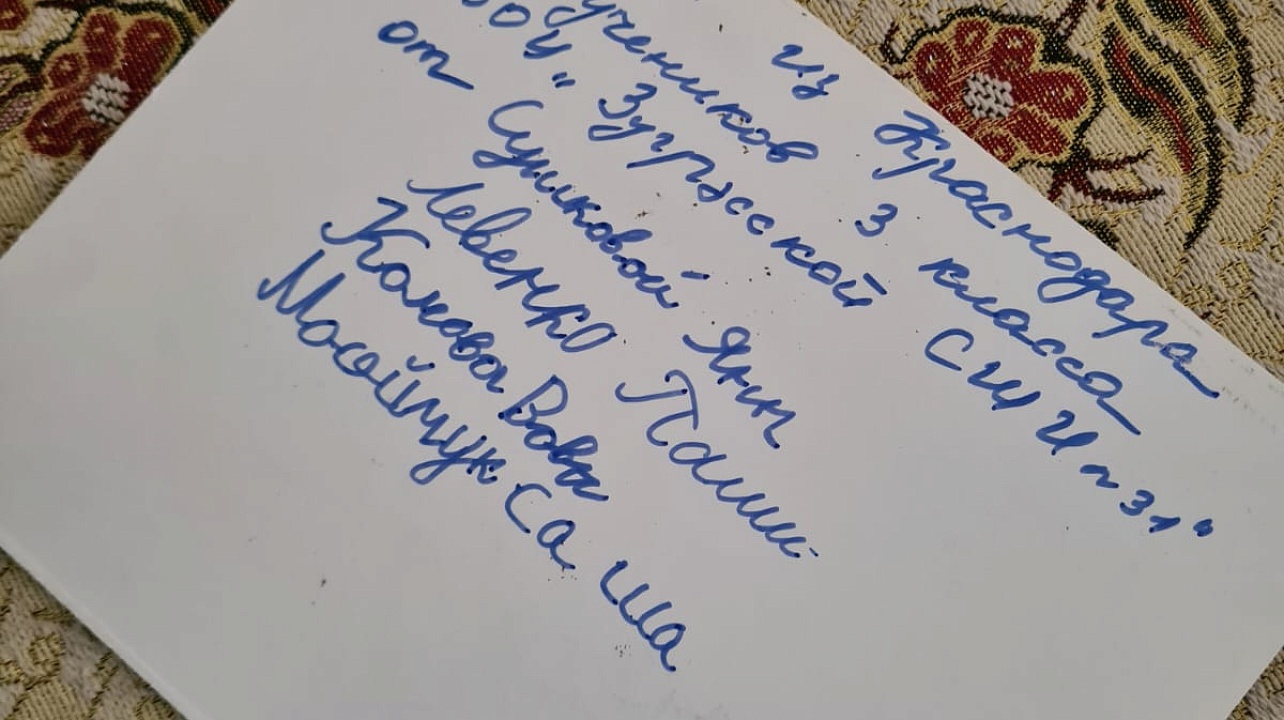 из Краснодара
учеников 3 класса
ОУ "Зугрэсской СШИ~31"
от Сушковой Яни
Левенко Паши
Комова Вовы
Моойчук Саша